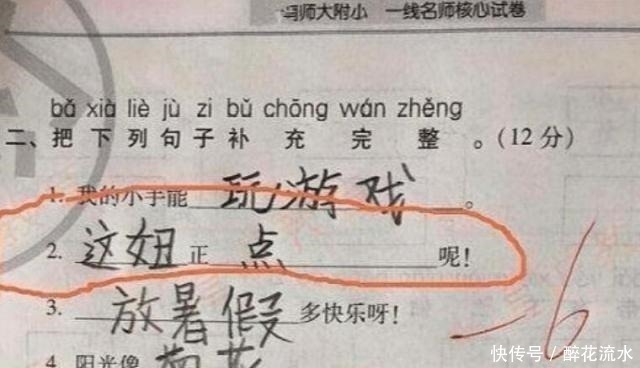 冯师大附小 一线名师核心试卷
bǎ xià liè jù zi bǔ chōng wán zhěng
二、把下列句子补充完整。(12分)
1. 我的小手能玩游戏。
2. 这妞正点呢!
3. 放暑假多快乐呀!
4. 阳光像菊花
-6
快传号/醉花流水